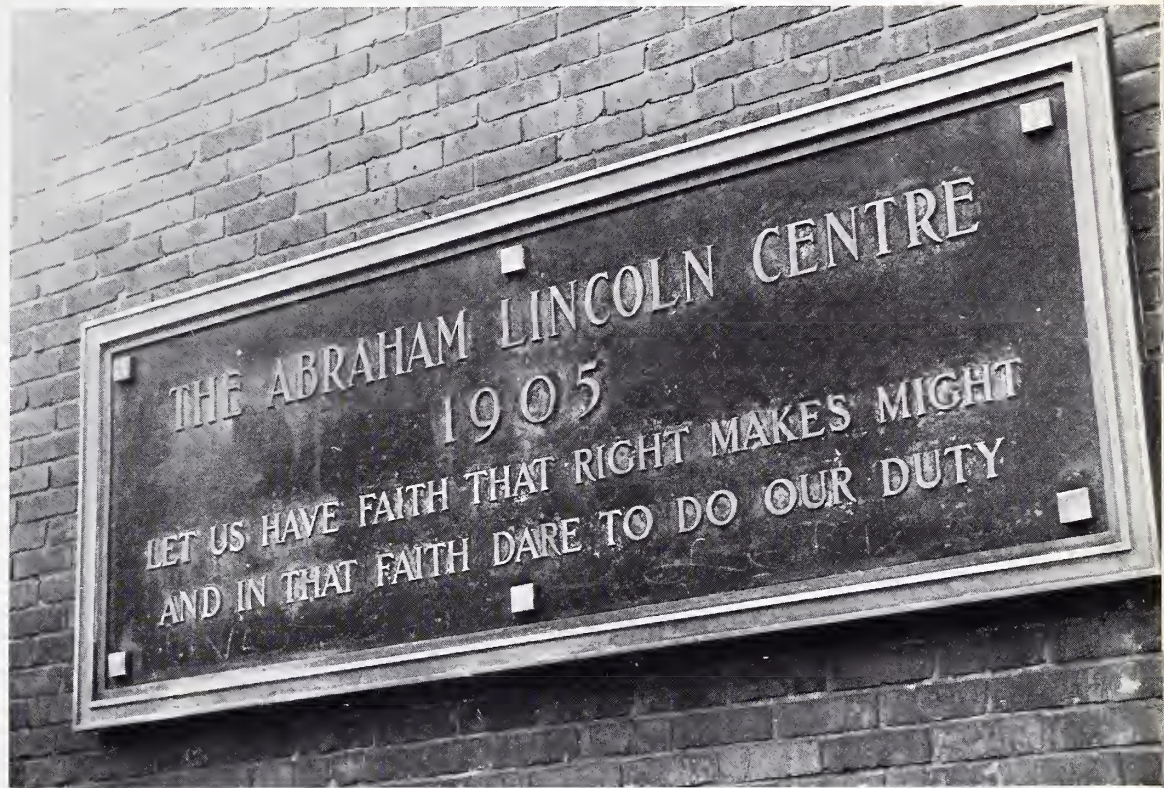 THE ABRAHAM LINCOLN CENTRE
1905
LET US HAVE FAITH THAT RIGHT MAKES MIGHT
AND IN THAT FAITH DARE TO DO OUR DUTY